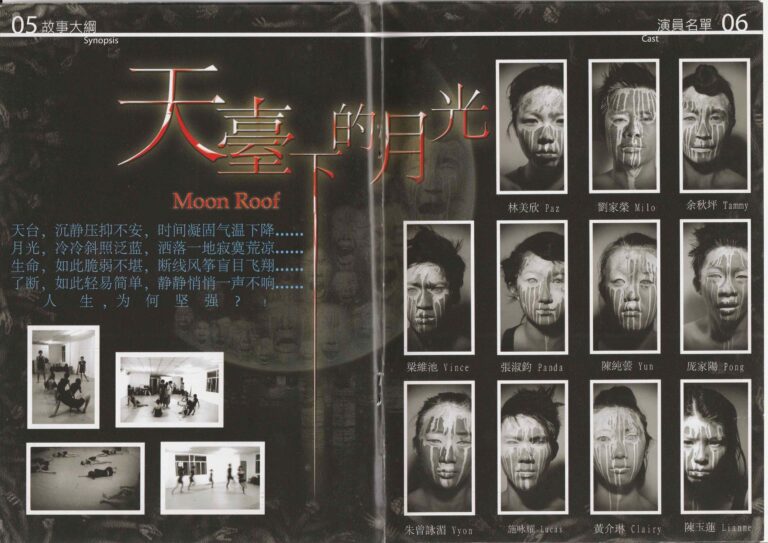 05 故事大綱
Synopsis
天臺下的月光
Moon Roof
天台，沉静压抑不安，时间凝固气温下降……
月光，冷冷斜照泛蓝，洒落一地寂寞荒凉……
生命，如此脆弱不堪，断线风筝盲目飞翔……
了断，如此轻易简单，静静悄悄一声不响……
人生，为何坚强？！
演員名單 06
Cast
林美欣 Paz
劉家榮 Milo
余秋坪 Tammy
梁維池 Vince
張淑鈞 Panda
陳純蕓 Yun
庞家陽 Pong
朱曾詠湄 Vyon
施咏耀 Lucas
黃介琳 Clairy
陳玉蓮 Lianne